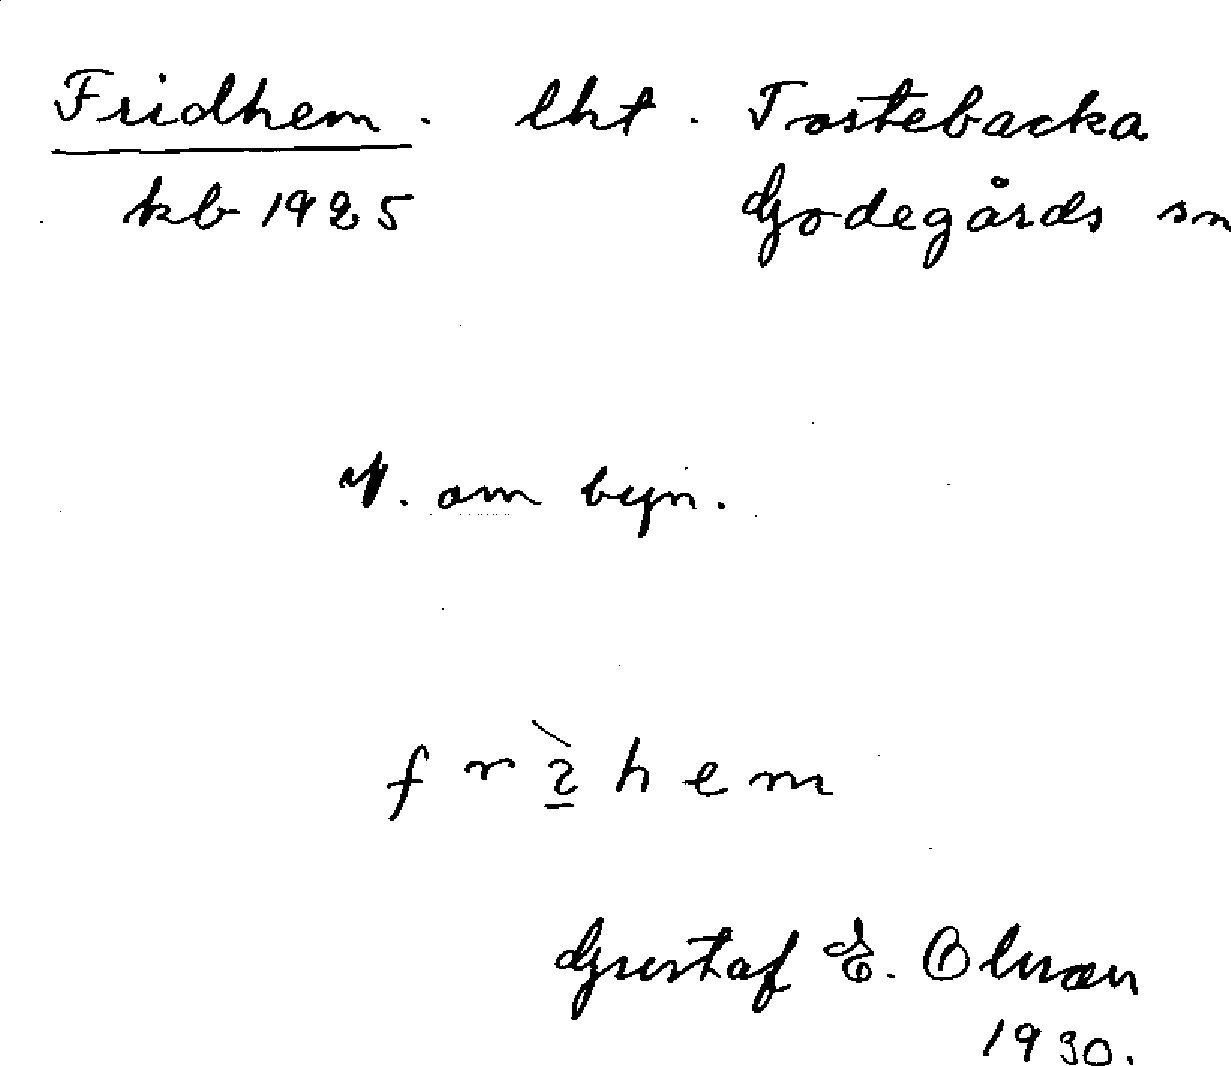 Fridhem. lht. Tostebacka
kb 1925 Godegårds sn
N. om byn.
f r ì h e m
Gustaf E. Olsson
1930.